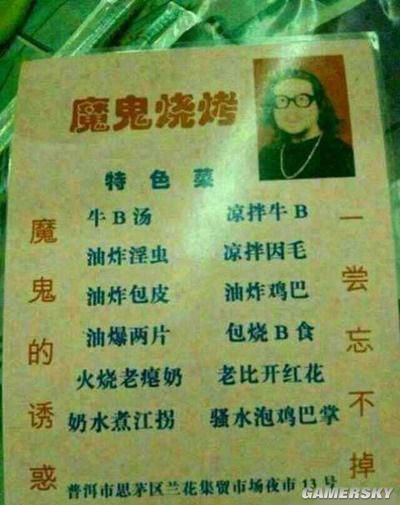 魔鬼烧烤
特色菜
牛B汤 凉拌牛B
油炸淫虫 凉拌因毛
油炸包皮 油炸鸡巴
油爆两片 包烧B食
火烧老瘪奶 老比开红花
奶水煮江拐 骚水泡鸡巴掌
魔鬼的诱惑
一尝忘不掉
普洱市思茅区兰花集贸市场夜市13号
GAMERSKY